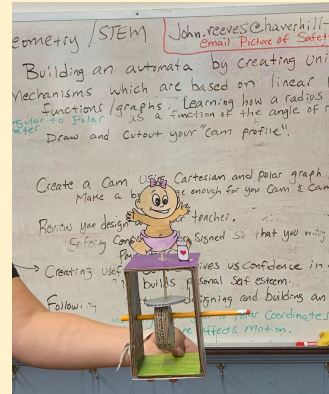 eometry / STEM
John.reeves@haverhill-
email Picture of Safet
Building an automata by creating Uni
Mechanisms which are based on linear
functions/graphs. Learning how a radius
gular to Polar as a function of the angle of r
ates
Draw and cutout your "cam profile".
Create a Cam Using Cartesian and polar graph.
Make a b enough for your Cam & Cam
Review your design teacher.
Safety Con Signed so that you may
Creating usef ives us confidence in
builds personal self esteem.
Follow signing and building an
Coordinates
affects motion.